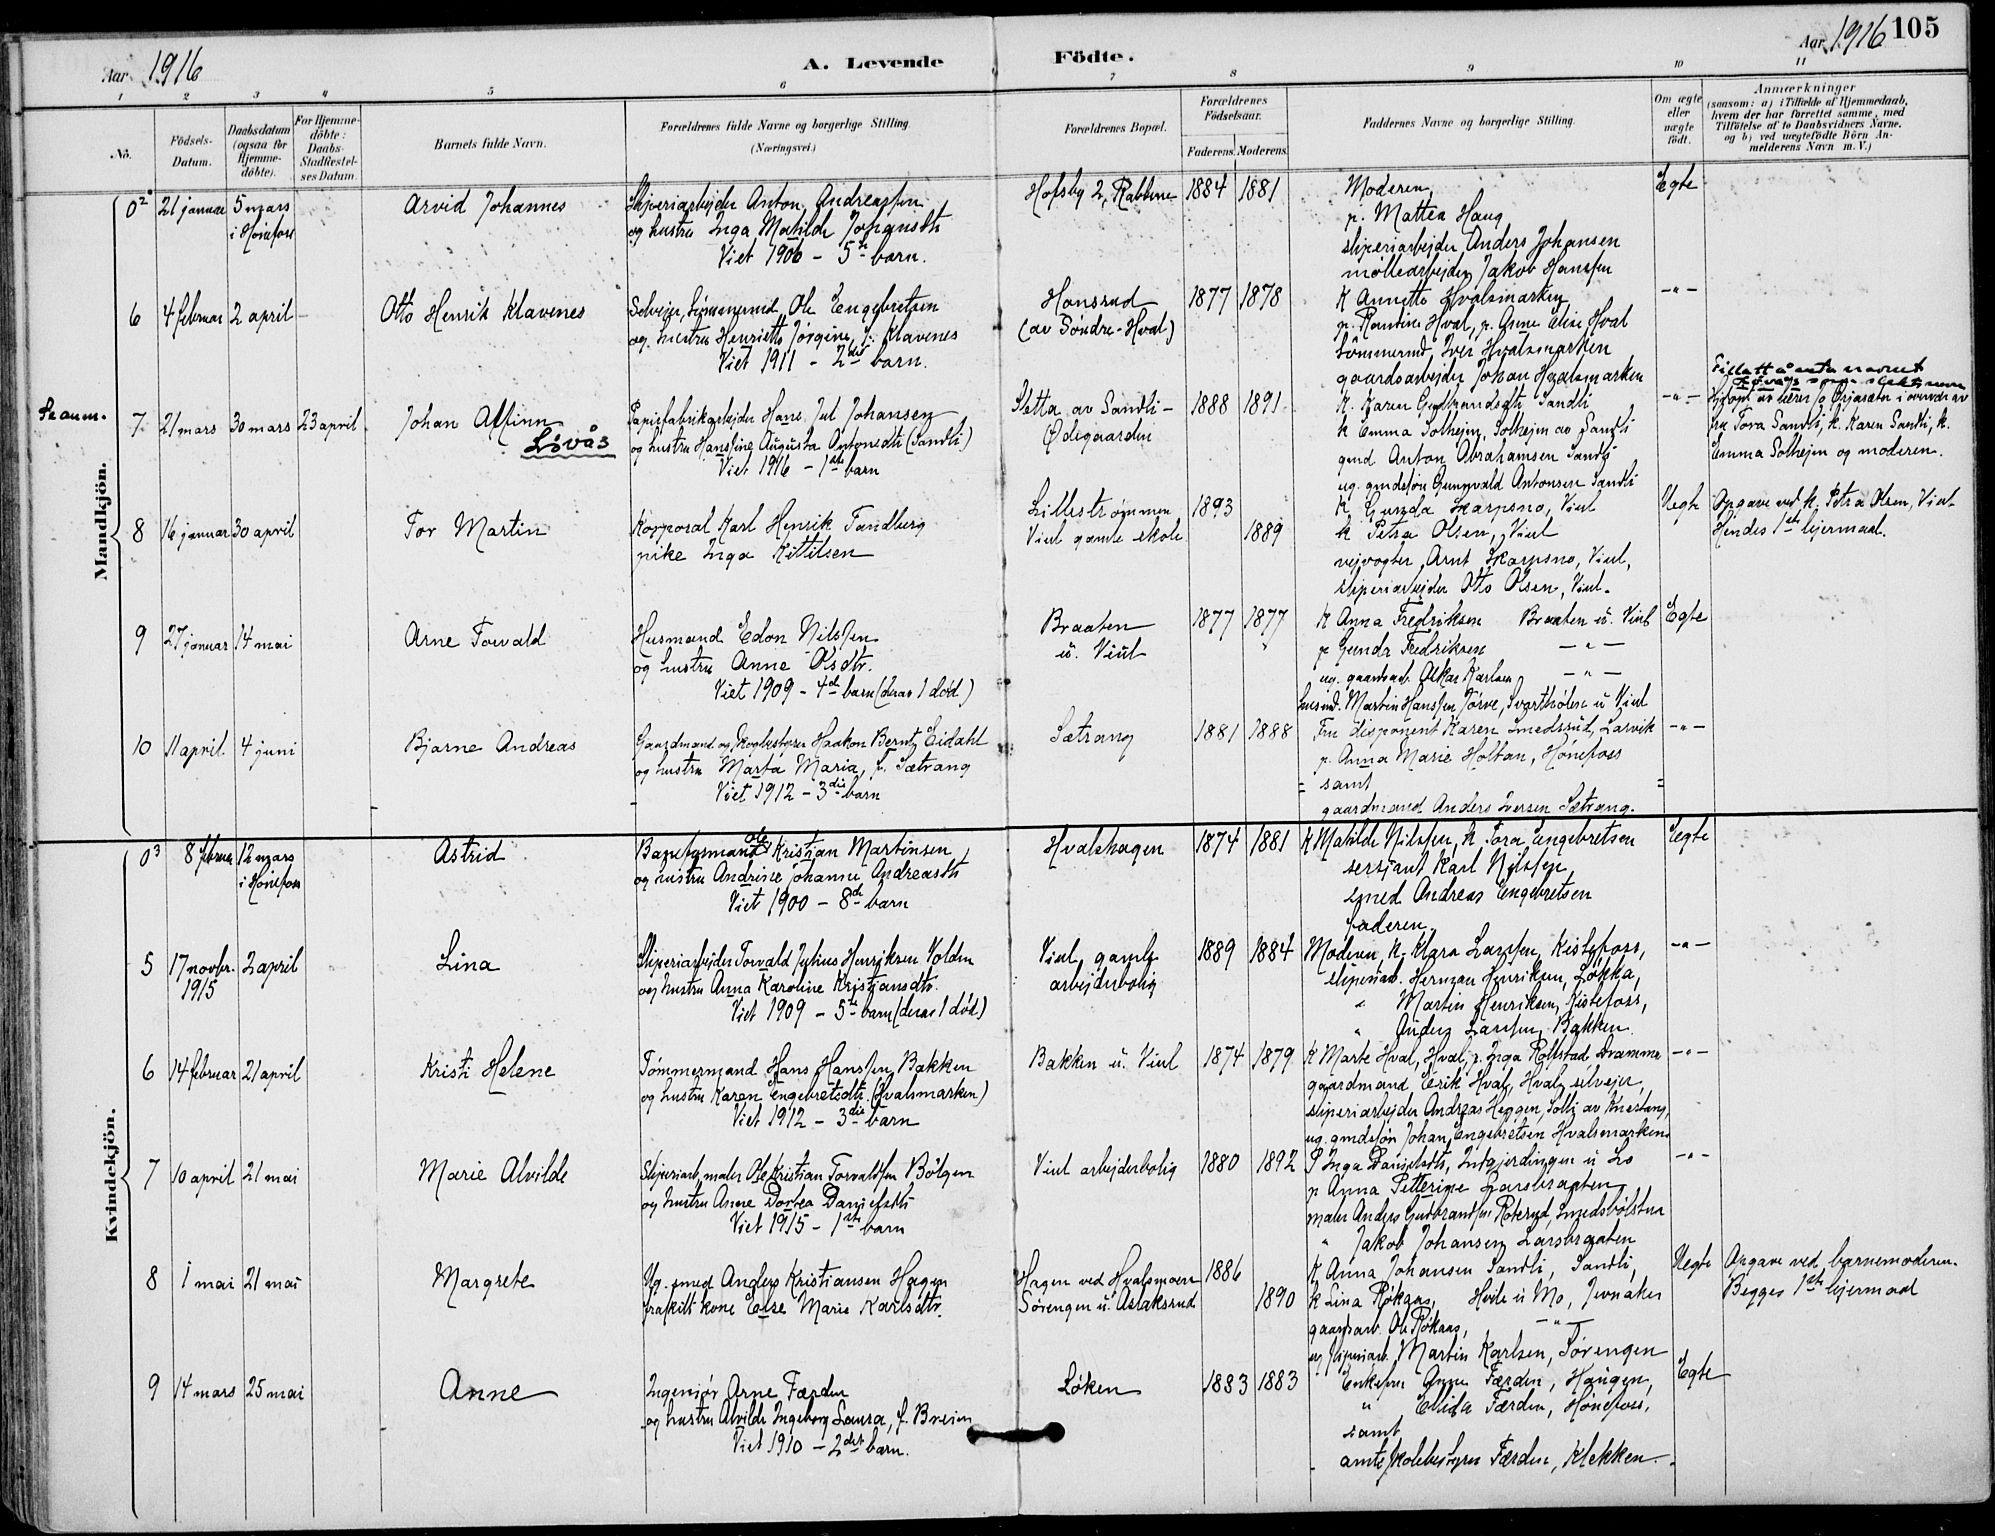 Aar 1916
A. Levende
Födte.
Aar 1916 105
1 2 3 4 5 6 7 8 9 10 11
No.
Födsels-
Datum.
Daabsdatum
(ogsaa for
Hjemme-
döbte).
For Hjemme-
döbte:
Daabs-
Stadfæstel-
ses Datum.
Barnets fulde Navn.
Forældrenes fulde Navne og borgerlige Stilling.
(Næringsvei.)
Forældrenes Bopæl.
Forældrenes
Födselsaar.
Faderens. Moderens.
Faddernes Navne og borgerlige Stilling.
Om ægte
eller
uægte
født.
Anmærkninger
(saasom: a) i Tilfælde af Hjemmedaab,
hvem der har forrettet samme, med
Tilføielse af to Daabsvidners Navne,
og b) ved uægtefödte Börn An-
melderens Navn m. V.)
Mandkjön.
0² 21 januar 5 mars
i Hönefoss
Arvid Johannes
Sliperiarbejder Anton Andreassen
og hustru Inga Matilde Johansdtr
Viet 1906 - 5te barn.
Hofsby 2, Rabbene
1884 1881
Moderen,
p. Mattea Haug
sliperiarbejder Anders Johansen
møllearbejder Jakob Hanssen
Egte
6 4 februar 2 april
Otto Henrik Klavenes
Selvejer, Ole Engebretsen
og hustru Henriette Jørgine, f. Klavenes
Viet 1911 - 2det barn.
Honsrud
(av Söndre-Hval)
1877 1878
K Annette Hvalsmarken
p. Hval, p. Anne Elise Hval
Iver Hvalsmarken
gaardsarbejder Johan Hvalsmarken
-"-
7 21 mars 30 mars 23 april
Johan Alfinn
Lövås
Papirfabrikarbejder Hans Jul Johansen
og hustru Hanssine Augusta Antonsdtr (Sandli)
Viet 1916 - 1ste barn
Sletta av Sandli-
Ødegaarden
1888 1891
K. Karen Gulbrandsdtr Sandli
k Emma Solhejm, Solhejm av Sandli
gmd Anton Abrahamsen Sandli
ug. gmdsøn Gunnvald Antonsen Sandli
-"-
Tillatt å anta navnet
Lövås som slektsnavn
fru Tora Sandli, k. Karen Sandli, k.
Emma Solhejm og moderen.
8 16 januar 30 april
Tor Martin
Korporal Karl Henrik Tandberg
pike Inga Kittilsen
Lillestrømmen
Viul gamle skole
1893
1889
K Gunda Skarpsno, Viul
k Petra Olsen, Viul
vejvogter Arnt Skarpsno, Viul,
sliperiarbejder Otto Olsen, Viul.
Uegte
Opgave ved k. Petra Olsen, Viul
Hendes 1ste lejermaal.
9 27 januar 14 mai
Arne Torvald
Husmand Edon Nilssen
og hustru Anne Olsdtr.
Viet 1909 - 4de barn (derav 1 død)
Braaten
u. Viul
1877 1877
K Anna Fredriksen Braaten u. Viul
p Gunda Fredriksen -"-
ug. gaardsarb. Oskar Karlsen -"-
husmd. Martin Hanssen Tørve, Svarthølen u Viul
Egte
10 11 april. 4 juni
Bjarne Andreas
Gaardmand og Haakon Bernt Eidahl
og hustru Marta Maria, f. Sætrang
Viet 1912 - 3die barn
Sætrang
1881 1888
Fru disponent Karen Smedsrud, Larvik
p. Anna Marie Holtan, Hönefoss
samt
gaardmand Anders Iversen Sætrang.
-"-
Kvindekjön.
0³ 8 februar 12 mars
i Hönefoss
Astrid
Ole Kristian Martinsen
og hustru Andrine Johanne Andreasdtr
Viet 1900 - 8de barn
Hvalshagen
1874 1881
K Matilde Nilssen, k. Tora Engebretsen
sersjant Karl Nilssen
smed Andreas Engebretsen
faderen
Eegte
5 17 novbr. 2 april
1915
Lina
Sliperiarbejder Torvald Julius Henriksen Volden
og hustru Anna Karoline Kristiansdtr.
Viet 1909 - 5te barn (derav 1 död.)
Viul gamle
arbejderbolig
1889 1884
Moderen, k. Klara Larssen, Kistefoss,
sliperiarb. Herman Henriksen, Løkka,
" Martin Henriksen, Kistefoss,
" Anders Larssen, Bakken.
-"-
6 14 februar 21 april
Kristi Helene
Tømmermand Hans Hanssen Bakken
og hustru Karen Engebretsdtr. (Hvalsmarken)
Viet 1912 - 3die barn
Bakken u. Viul
1874 1879
K Marte Hval, Hval, p. Inga Rolstad Drammen
gaardmand Erik Hval, Hval, selvejer,
sliperiarbejder Andreas Heggen, Solli av Knestang,
ug. gmdsøn Johan Engebretsen Hvalsmarken
-"-
7 10 april 21 mai
Marie Alvilde
Sliperiarb, maler Ole Kristian Torvaldsen Bölgen
og hustru Anne Dortea Danielsdtr
Viet 1915 - 1ste barn
Viul arbejderbolig
1880 1892
P Inga Danielsdtr, Intgjerdingen u Lo
p Anna Petterine Larsbraaten
maler Anders Gudbrandsen Roterud, Smedsbölstua
" Jakob Johansen Larsbraaten
-"-
8 1 mai 21 mai
Margrete
Ug. smed Anders Kristiansen Hagen
fraskilt kone Else Marie Karlsdtr.
Hagen ved Hvalsmoen
Sørengen u. Aslaksrud
1886
1890
K Anna Johansen Sandli, Sandli,
k Lina Røkaas, Hvile u Mo, Jevnaker
gaardsarb. Ole Røkaas, -"-
ug sliperiarb. Martin Karlsen, Sørengen
Uegte
Opgave ved barnemoderen.
Begges 1ste lejermaal
9 14 mars 25 mai
Anne
Ingeniør Arne Færden
og hustru Alvilde Ingeborg Laura, f. Breien
Viet 1910 - 2det barn.
Løken
1883 1883
Enkefru Anne Færden, Haugen,
" Elida Færden, Hönefoss,
samt
amtsskolebestyrer Færden, Klekken.
Egte